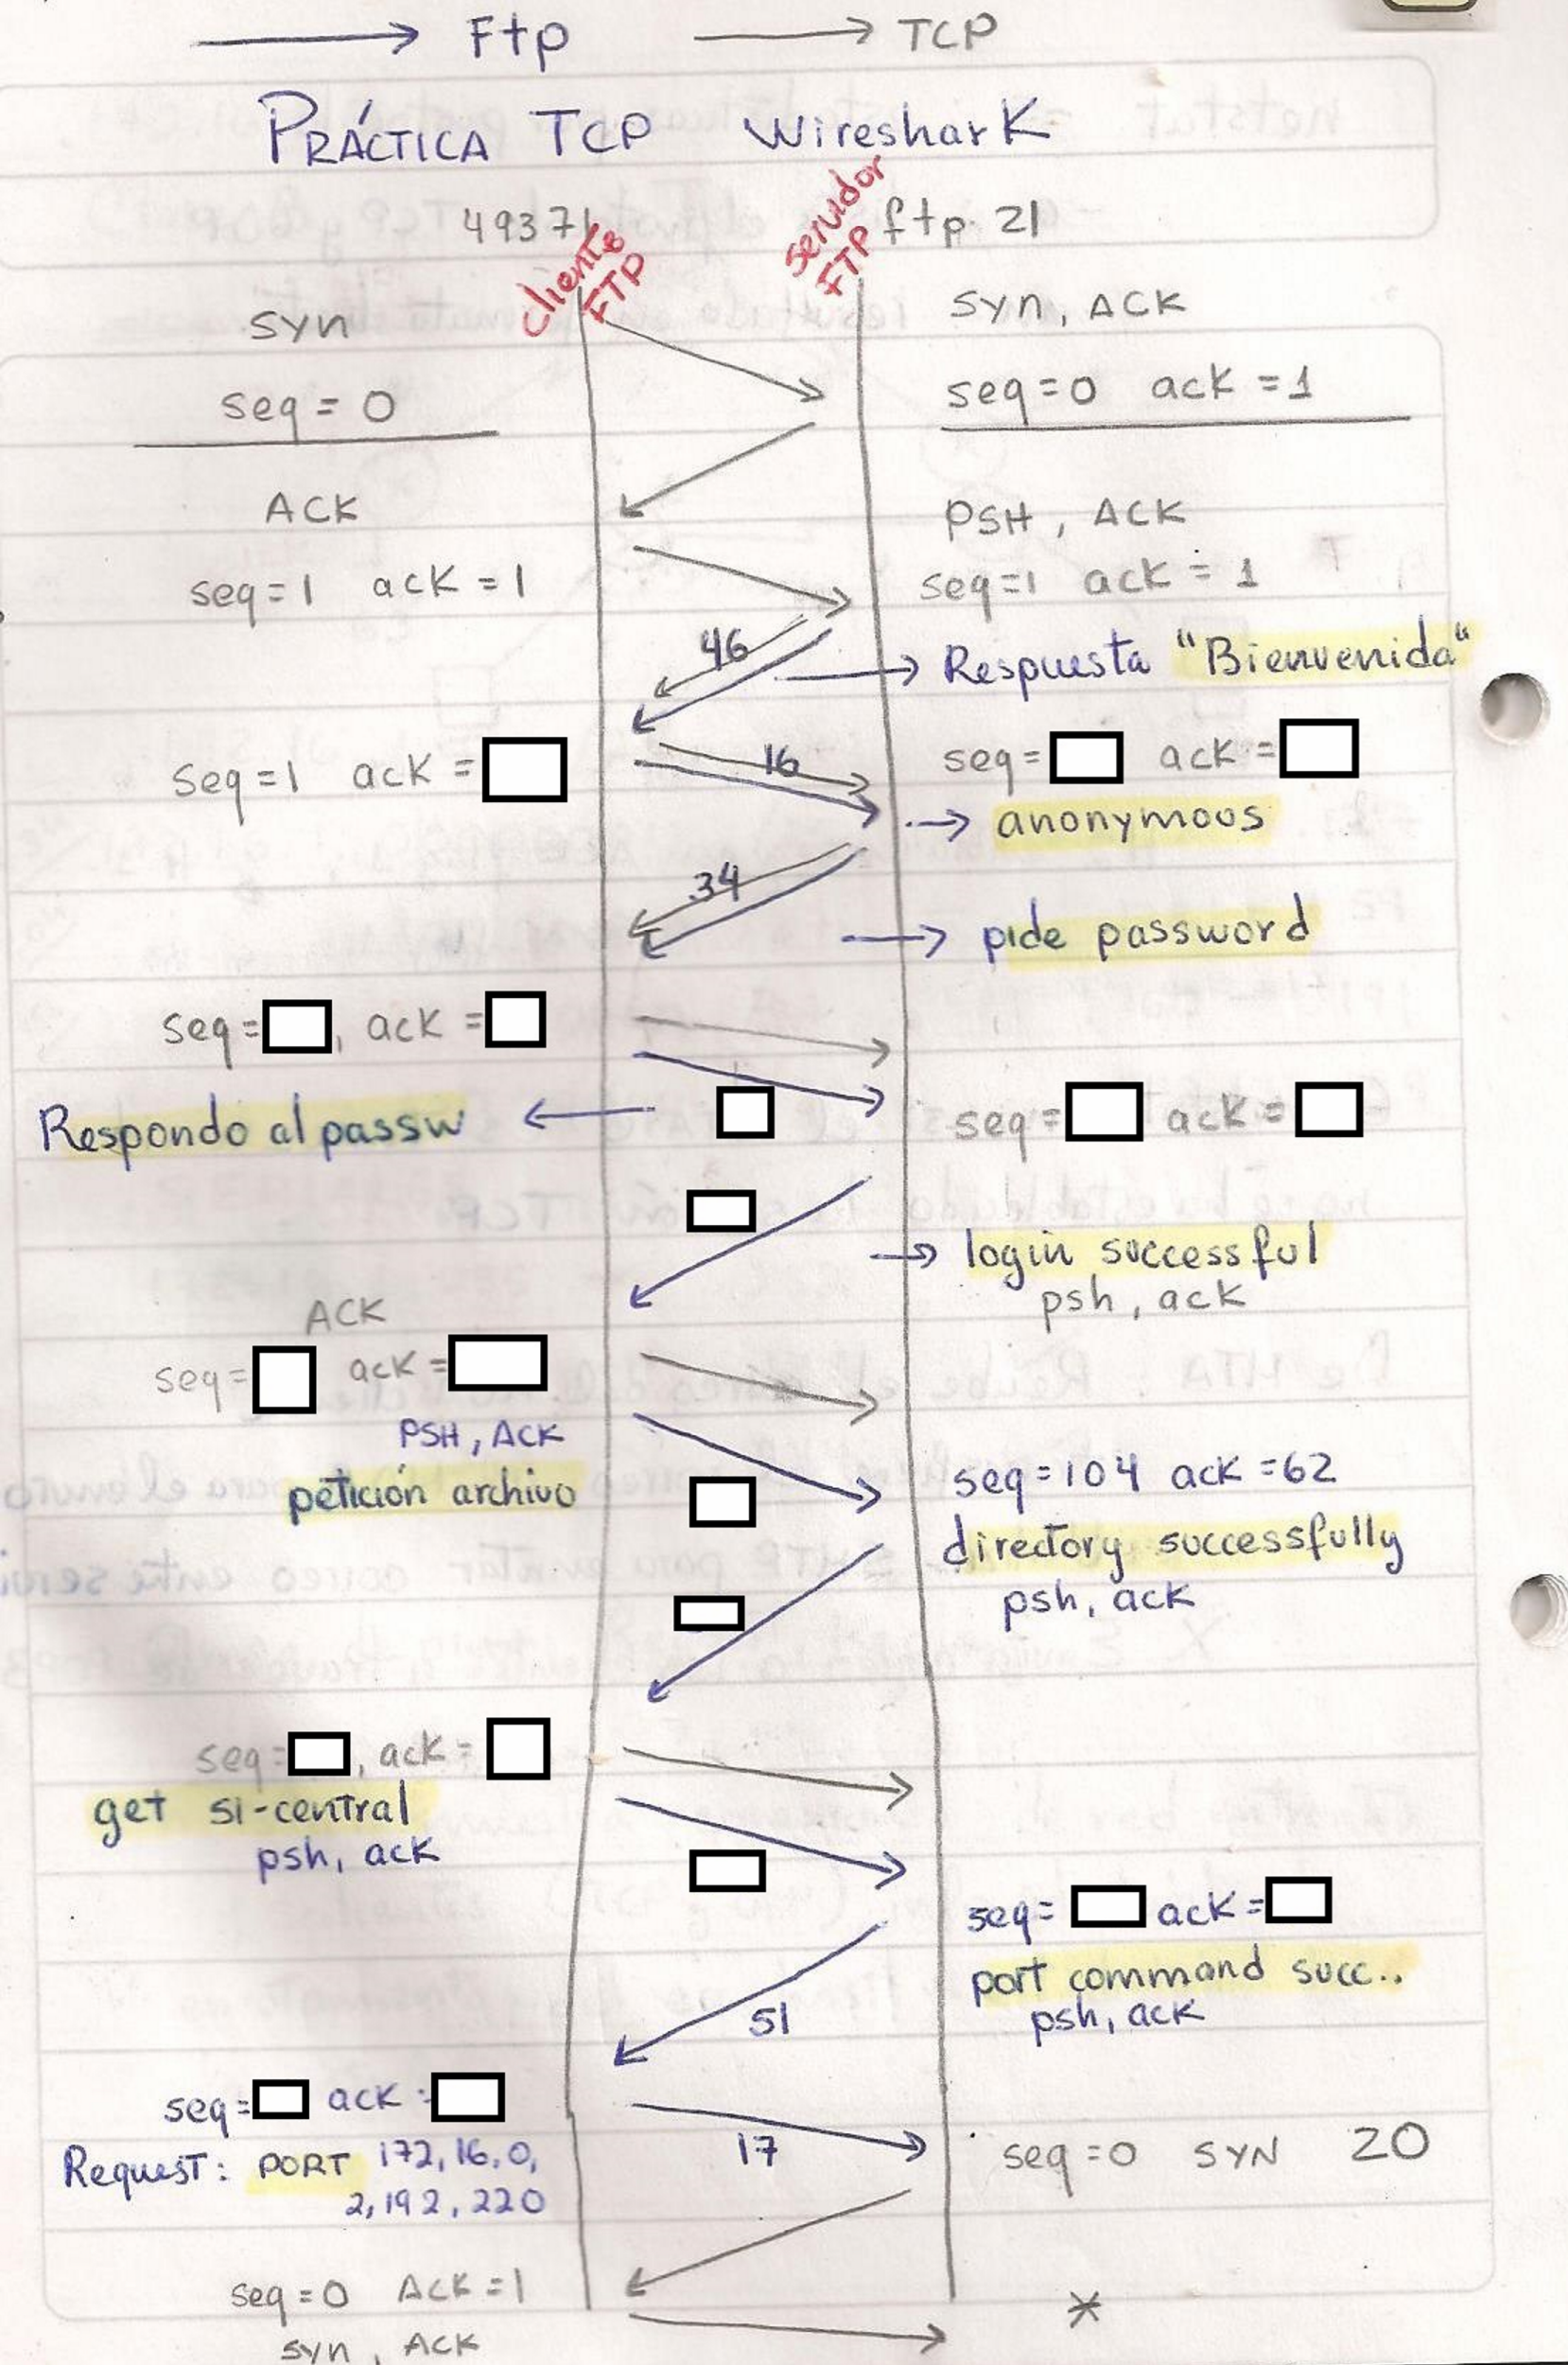 → Ftp → TCP
PRÁCTICA TCP WiresharK
49371 cliente FTP servidor FTP ftp 21
SYN
SYN, ACK
seq = 0
seq=0 ack=1
ACK
PSH, ACK
seq=1 ack=1
seq=1 ack=1
46
→ Respuesta "Bienvenida"
seq=1 ack=
16
seq= ack=
→ anonymoos
34
→ pide password
seq= , ack=
Respondo al passw ←
seq= ack=
→ login successful
psh, ack
ACK
seq= ack=
PSH, ACK
petición archivo
seq=104 ack=62
directory successfully
psh, ack
seq= , ack=
get si-central
psh, ack
seq= ack=
port command succ..
psh, ack
51
seq= ack=
17
seq=0 SYN 20
Request: PORT 172,16,0,
2,192,220
seq=0 ACK=1
*
syn, ACK